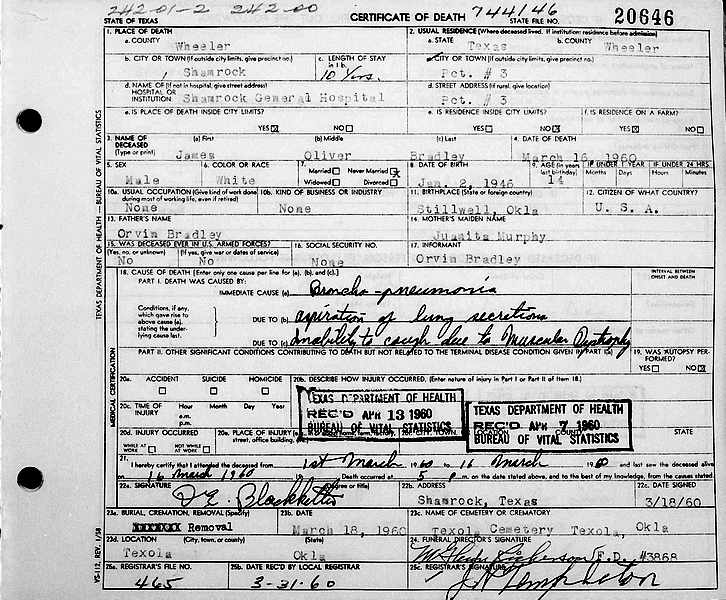 242 01-2 242-00
744/46
STATE OF TEXAS
CERTIFICATE OF DEATH
STATE FILE NO.
20646
1. PLACE OF DEATH
a. COUNTY
Wheeler
2. USUAL RESIDENCE (Where deceased lived. If institution: residence before admission)
a. STATE
Texas
b. COUNTY
Wheeler
b. CITY OR TOWN (If outside city limits, give precinct no.)
Shamrock
c. LENGTH OF STAY
in 1 b
10 Yrs.
c. CITY OR TOWN (If outside city limits, give precinct no.)
Pct. # 3
d. NAME OF (If not in hospital, give street address)
HOSPITAL OR
INSTITUTION
Shamrock General Hospital
d. STREET ADDRESS (If rural, give location)
Pct. # 3
e. IS PLACE OF DEATH INSIDE CITY LIMITS?
YES NO
e. IS RESIDENCE INSIDE CITY LIMITS?
YES NO
f. IS RESIDENCE ON A FARM?
YES NO
3. NAME OF
DECEASED
(Type or print)
(a) First
James
(b) Middle
Oliver
(c) Last
Bradley
4. DATE OF DEATH
March 16, 1960
5. SEX
Male
6. COLOR OR RACE
White
7.
Married Never Married
Widowed Divorced
8. DATE OF BIRTH
Jan. 2, 1946
9. AGE (In years
last birthday)
14
IF UNDER 1 YEAR
Months Days
IF UNDER 24 HRS.
Hours Min.
10a. USUAL OCCUPATION (Give kind of work done
during most of working life, even if retired)
None
10b. KIND OF BUSINESS OR INDUSTRY
None
11. BIRTHPLACE (State or foreign country)
Stillwell, Okla
12. CITIZEN OF WHAT COUNTRY?
U. S. A.
13. FATHER'S NAME
Orvin Bradley
14. MOTHER'S MAIDEN NAME
Juanita Murphy
15. WAS DECEASED EVER IN U.S. ARMED FORCES?
(Yes, no, or unknown) (If yes, give war or dates of service)
No No
16. SOCIAL SECURITY NO.
None
17. INFORMANT
Orvin Bradley
18. CAUSE OF DEATH [Enter only one cause per line for (a), (b), and (c).]
PART I. DEATH WAS CAUSED BY:
IMMEDIATE CAUSE (a)
Broncho-pneumonia
INTERVAL BETWEEN
ONSET AND DEATH
Conditions, if any,
which gave rise to
above cause (a),
stating the under-
lying cause last.
DUE TO (b)
aspiration of lung secretions
DUE TO (c)
inability to cough due to Muscular Dystrophy
PART II. OTHER SIGNIFICANT CONDITIONS CONTRIBUTING TO DEATH BUT NOT RELATED TO THE TERMINAL DISEASE CONDITION GIVEN IN PART I(a)
19. WAS AUTOPSY PER-
FORMED?
YES NO
20a. ACCIDENT SUICIDE HOMICIDE
20b. DESCRIBE HOW INJURY OCCURRED. (Enter nature of injury in Part I or Part II of item 18.)
20c. TIME OF
INJURY
Hour Month Day Year
a.m.
p.m.
TEXAS DEPARTMENT OF HEALTH
REC'D APR 13 1960
BUREAU OF VITAL STATISTICS
TEXAS DEPARTMENT OF HEALTH
REC'D APR 7 1960
BUREAU OF VITAL STATISTICS
20d. INJURY OCCURRED
WHILE AT
WORK
NOT WHILE
AT WORK
20e. PLACE OF INJURY
street, office building,
COUNTY
STATE
21.
I hereby certify that I attended the deceased from 1st March 1960 to 16 March 1960 and last saw the deceased alive
on 16 March 1960 Death occurred at m. on the date stated above, and to the best of my knowledge, from the causes stated.
22a. SIGNATURE
(Degree or title)
22b. ADDRESS
Shamrock, Texas
22c. DATE SIGNED
3/18/60
23a. BURIAL, CREMATION, REMOVAL (Specify)
Removal
23b. DATE
March 18, 1960
23c. NAME OF CEMETERY OR CREMATORY
Texola Cemetery Texola, Okla
23d. LOCATION (City, town, or county) (State)
Texola Okla
24. FUNERAL DIRECTOR'S SIGNATURE
F.D. #3868
25a. REGISTRAR'S FILE NO.
465
25b. DATE REC'D BY LOCAL REGISTRAR
3-31-60
25c. REGISTRAR'S SIGNATURE
J Templeton
TEXAS DEPARTMENT OF HEALTH—BUREAU OF VITAL STATISTICS
MEDICAL CERTIFICATION
VS-112, REV. 1/58